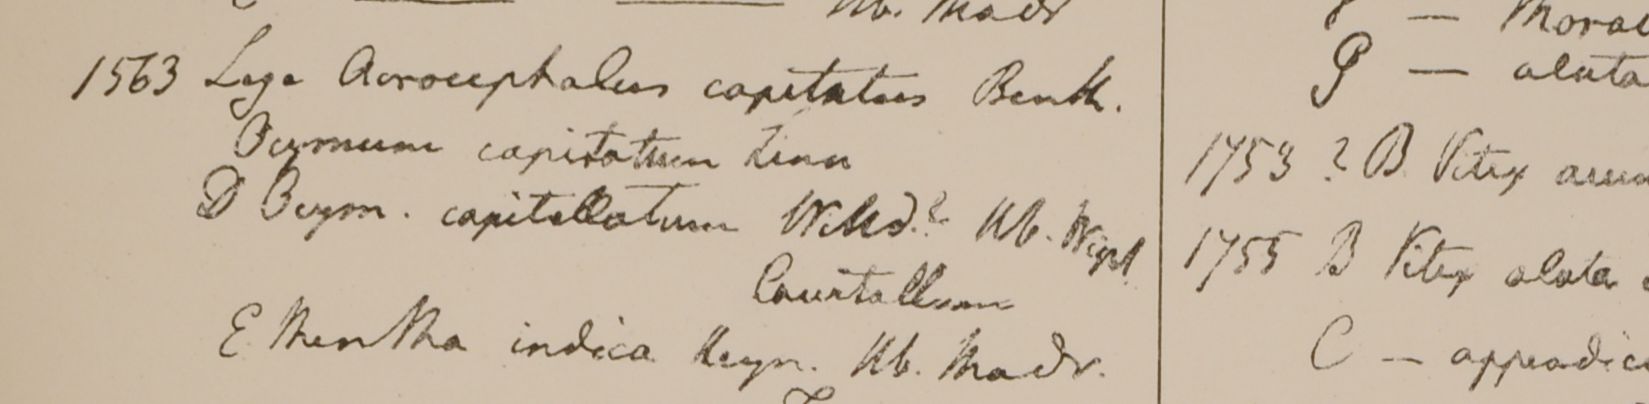 Hb. Madr
1563 Lege Acrocephalus capitatus Benth.
Ocymum capitatum Linn
D Ocym. capitellatum Willd.? Hb. Wight
Courtallum
E Mentha indica Heyn. Hb. Madr.
— Morac
P — alata
1753 ? B Vitex arun
1755 B Vitex alata
C — appendic